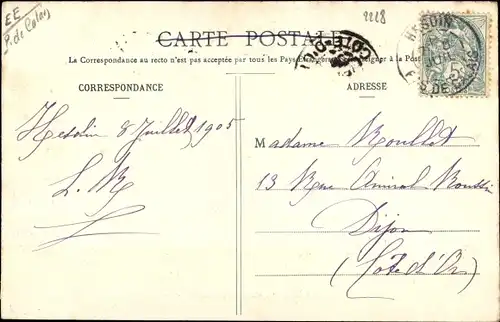 EE
P. de Calais
2228
CARTE POSTALE
La Correspondance au recto n'est pas acceptée par tous les Pays étrangers à la Poste
CORRESPONDANCE
ADRESSE
HESDIN
PAS DE CALAIS
COTE-D'OR
5
Hesdin 8 Juillet 1905
L. R
Madame Roullot
13 Rue Amiral Roussin
Dijon
(Côte d'Or)